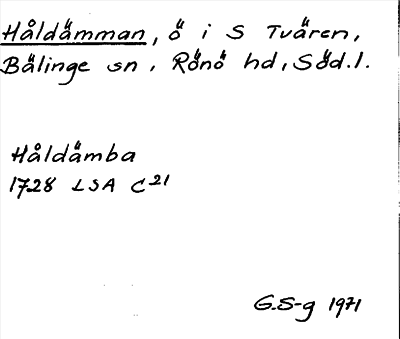 Håldämman, ö i S Tvären,
Bälinge sn, Rönö hd, Söd.l.
Håldämba
1728 LSA C21
G.S-g 1971